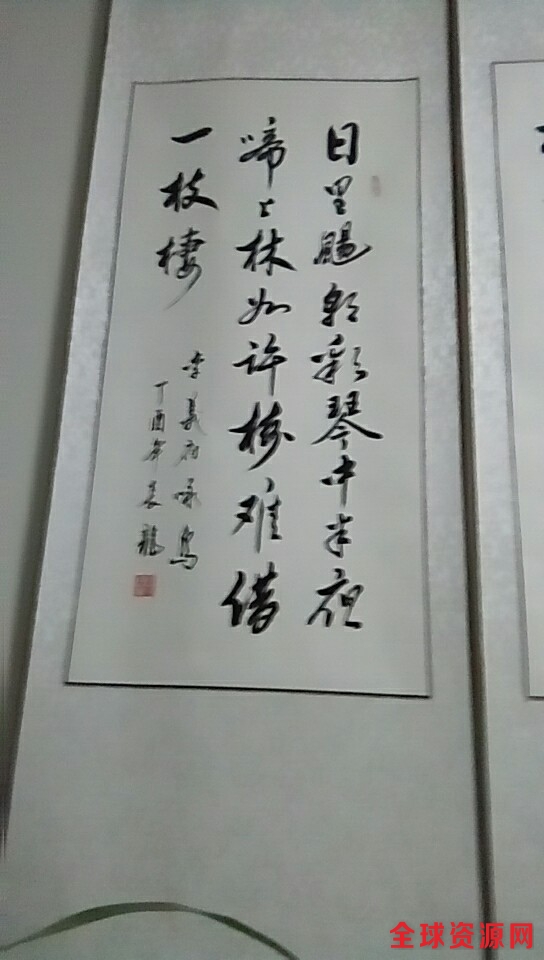 日里飏朝彩琴中半夜
啼上林如许树难借
一枝棲
李義府咏烏
丁酉年
全球资源网